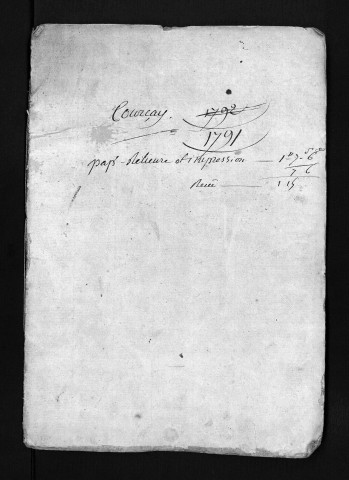 Courçay. 1792
1791
pap.r Relieure et impression — 1tt 7s 6d
7 6
Reçu — 1 15